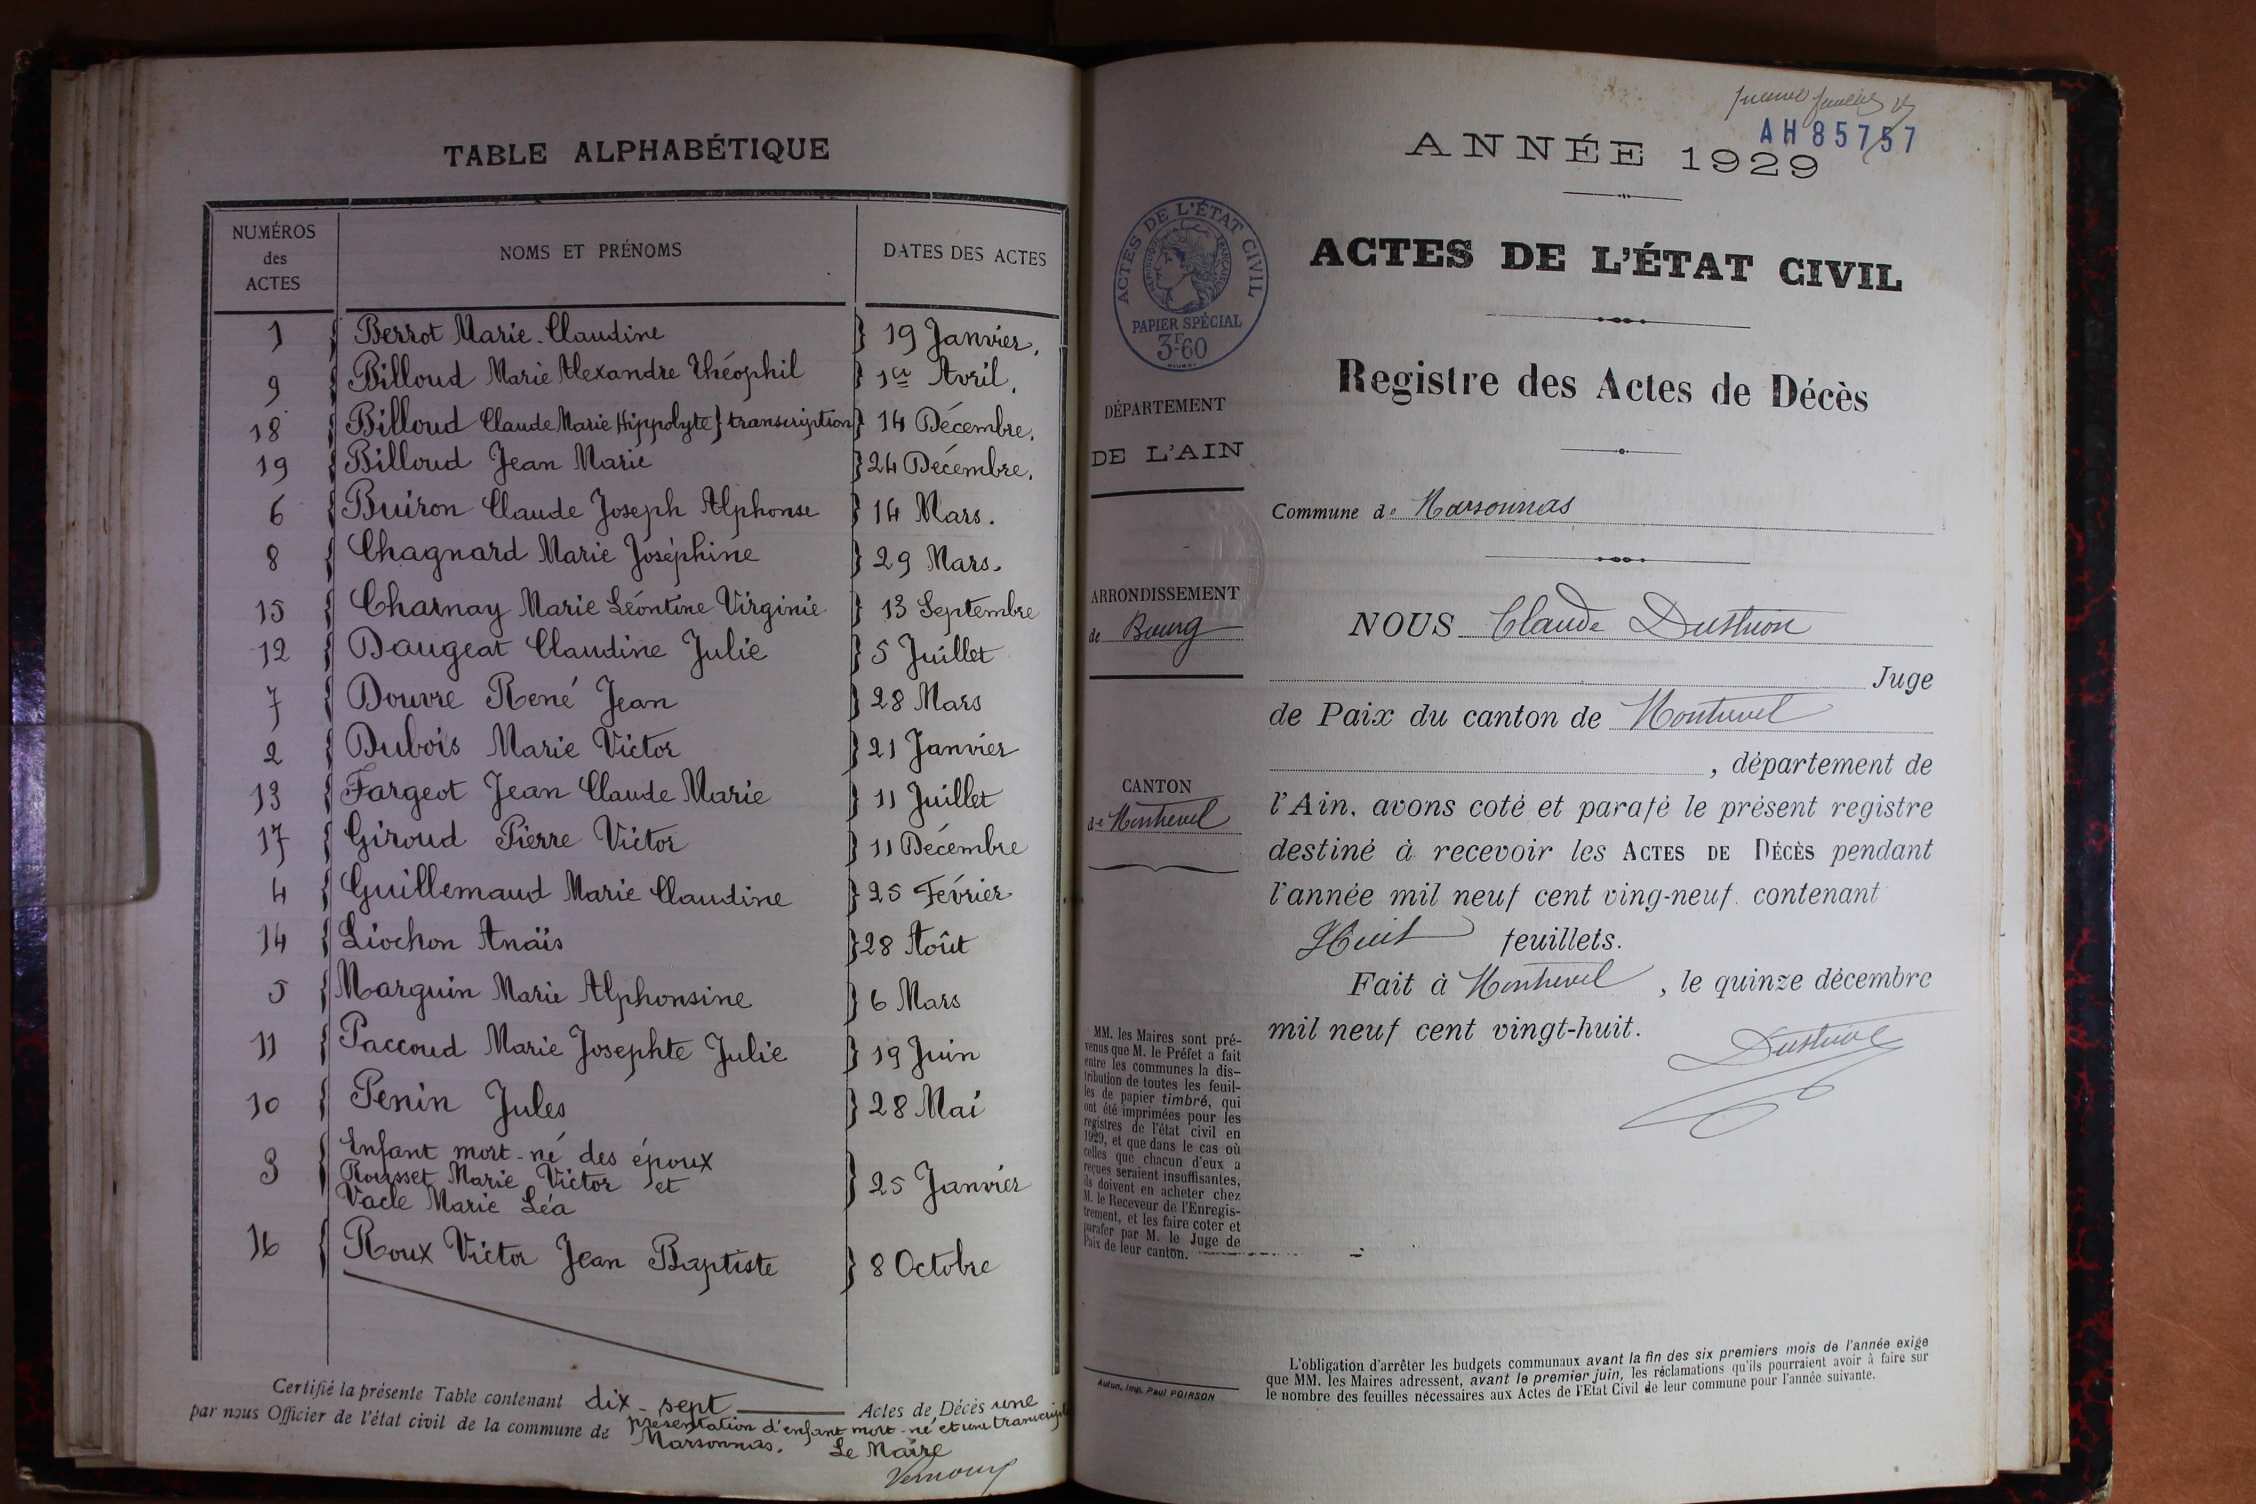 TABLE ALPHABÉTIQUE
NUMÉROS des ACTES NOMS ET PRÉNOMS DATES DES ACTES
1 Berrot Marie-Claudine 19 Janvier.
9 Billoud Marie Alexandre Théophil 1er Avril.
18 Billoud Claude Marie Hippolyte} transcription 14 Décembre.
19 Billoud Jean Marie 24 Décembre.
6 Buiron Claude Joseph Alphonse 14 Mars.
8 Chagnard Marie Joséphine 29 Mars.
15 Charnay Marie Léontine Virginie 13 Septembre
12 Daugeat Claudine Julie 5 Juillet
7 Douvre René Jean 28 Mars
2 Dubois Marie Victor 21 Janvier
13 Fargeot Jean Claude Marie 11 Juillet
17 Giroud Pierre Victor 11 Décembre
4 Guillemaud Marie Claudine 25 Février
14 Liochon Anaïs 28 Août
5 Marguin Marie Alphonsine 6 Mars
11 Paccoud Marie Josephte Julie 19 Juin
10 Penin Jules 28 Mai
3 Enfant mort-né des époux
Rousset Marie Victor et 25 Janvier
Vacle Marie Léa
16 Roux Victor Jean Baptiste 8 Octobre
Certifié la présente Table contenant dix-sept Actes de Décès une
présentation d'enfant mort-né et une transcription
par nous Officier de l'état civil de la commune de Marsonnas. Le Maire
AH 85757
ANNÉE 1929
ACTES DE L'ÉTAT CIVIL
RÉPUBLIQUE FRANÇAISE
PAPIER SPÉCIAL
3F60
ACTES DE L'ÉTAT CIVIL
Registre des Actes de Décès
DÉPARTEMENT
DE L'AIN
ARRONDISSEMENT
de Bourg
CANTON
de Montrevel
MM. les Maires sont pré-
venus que M. le Préfet a fait
entre les communes la dis-
tribution de toutes les feuil-
les de papier timbré, qui
ont été imprimées pour les
registres de l'état civil en
1929, et que dans le cas où
celles que chacun d'eux a
reçues seraient insuffisantes,
ils doivent en acheter chez
M. le Receveur de l'Enregis-
trement, et les faire coter et
parafer par M. le Juge de
Paix de leur canton.
Autun, Imp. Paul POIRSON
Commune de Marsonnas
NOUS Claude
Juge
de Paix du canton de Montrevel
, département de
l'Ain, avons coté et parafé le présent registre
destiné à recevoir les ACTES DE DÉCÈS pendant
l'année mil neuf cent ving-neuf contenant
Huit feuillets.
Fait à Montrevel, le quinze décembre
mil neuf cent vingt-huit.
L'obligation d'arrêter les budgets communaux avant la fin des six premiers mois de l'année exige
que MM. les Maires adressent, avant le premier juin, les réclamations qu'ils pourraient avoir à faire sur
le nombre des feuilles nécessaires aux Actes de l'Etat Civil de leur commune pour l'année suivante.